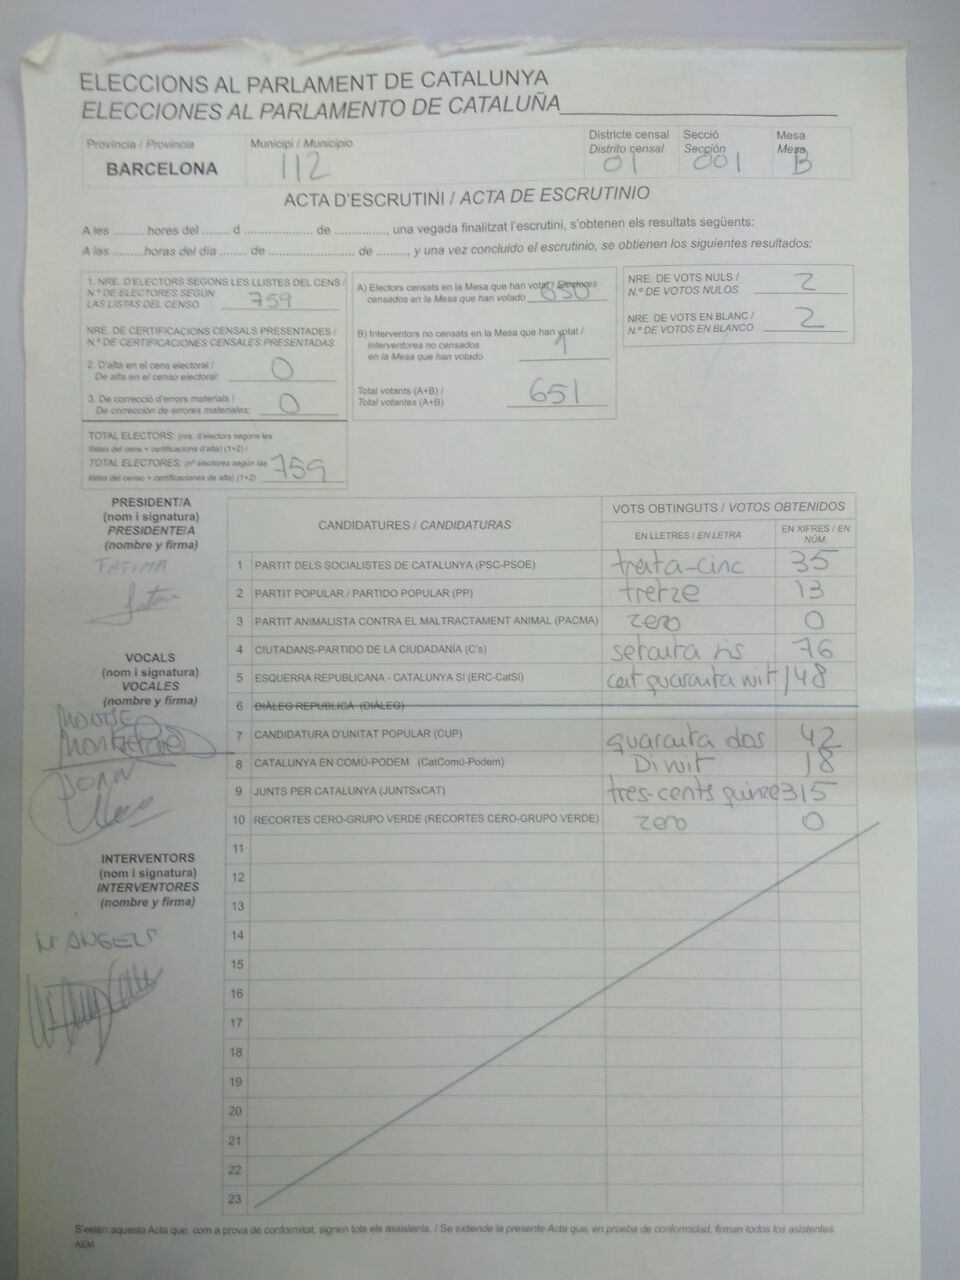 ELECCIONS AL PARLAMENT DE CATALUNYA
ELECCIONES AL PARLAMENTO DE CATALUÑA
Província / Provincia
BARCELONA
Municipi / Municipio
112
Districte censal
Distrito censal
01
Secció
Sección
001
Mesa
Mesa
B
ACTA D'ESCRUTINI / ACTA DE ESCRUTINIO
A les ..........hores del ....... d ..................... de ............., una vegada finalitzat l'escrutini, s'obtenen els resultats següents:
A las ..........horas del día ....... de ..................... de ........., y una vez concluido el escrutinio, se obtienen los siguientes resultados:
1. NRE. D'ELECTORS SEGONS LES LLISTES DEL CENS /
N.º DE ELECTORES SEGÚN
LAS LISTAS DEL CENSO 759
NRE. DE CERTIFICACIONS CENSALS PRESENTADES /
N.º DE CERTIFICACIONES CENSALES PRESENTADAS
2. D'alta en el cens electoral /
De alta en el censo electoral: 0
3. De correcció d'errors materials /
De corrección de errores materiales: 0
TOTAL ELECTORS: (nre. d'electors segons les
llistes del cens + certificacions d'alta) (1+2) /
TOTAL ELECTORES: (nº electores según las
listas del censo + certificaciones de alta) (1+2) 759
A) Electors censats en la Mesa que han votat / Electores
censados en la Mesa que han votado 650
B) Interventors no censats en la Mesa que han votat /
Interventores no censados
en la Mesa que han votado 1
Total votants (A+B) /
Total votantes (A+B) 651
NRE. DE VOTS NULS /
N.º DE VOTOS NULOS 2
NRE. DE VOTS EN BLANC /
N.º DE VOTOS EN BLANCO 2
PRESIDENT/A
(nom i signatura)
PRESIDENTE/A
(nombre y firma)
FATIMA
VOCALS
(nom i signatura)
VOCALES
(nombre y firma)
MONTSE
JOAN
INTERVENTORS
(nom i signatura)
INTERVENTORES
(nombre y firma)
M ANGELS
CANDIDATURES / CANDIDATURAS
VOTS OBTINGUTS / VOTOS OBTENIDOS
EN LLETRES / EN LETRA
EN XIFRES / EN
NÚM.
1 PARTIT DELS SOCIALISTES DE CATALUNYA (PSC-PSOE) trenta-cinc 35
2 PARTIT POPULAR / PARTIDO POPULAR (PP) tretze 13
3 PARTIT ANIMALISTA CONTRA EL MALTRACTAMENT ANIMAL (PACMA) zero 0
4 CIUTADANS-PARTIDO DE LA CIUDADANÍA (C's) setanta sis 76
5 ESQUERRA REPUBLICANA - CATALUNYA SÍ (ERC-CatSí) cent quaranta vuit 148
6 DIÀLEG REPUBLICÀ (DIÀLEG)
7 CANDIDATURA D'UNITAT POPULAR (CUP) quaranta dos 42
8 CATALUNYA EN COMÚ-PODEM (CatComú-Podem) Divuit 18
9 JUNTS PER CATALUNYA (JUNTSxCAT) tres-cents quinze 315
10 RECORTES CERO-GRUPO VERDE (RECORTES CERO-GRUPO VERDE) zero 0
11
12
13
14
15
16
17
18
19
20
21
22
23
S'estén aquesta Acta que, com a prova de conformitat, signen tots els assistents. / Se extiende la presente Acta que, en prueba de conformidad, firman todos los asistentes.
AEM